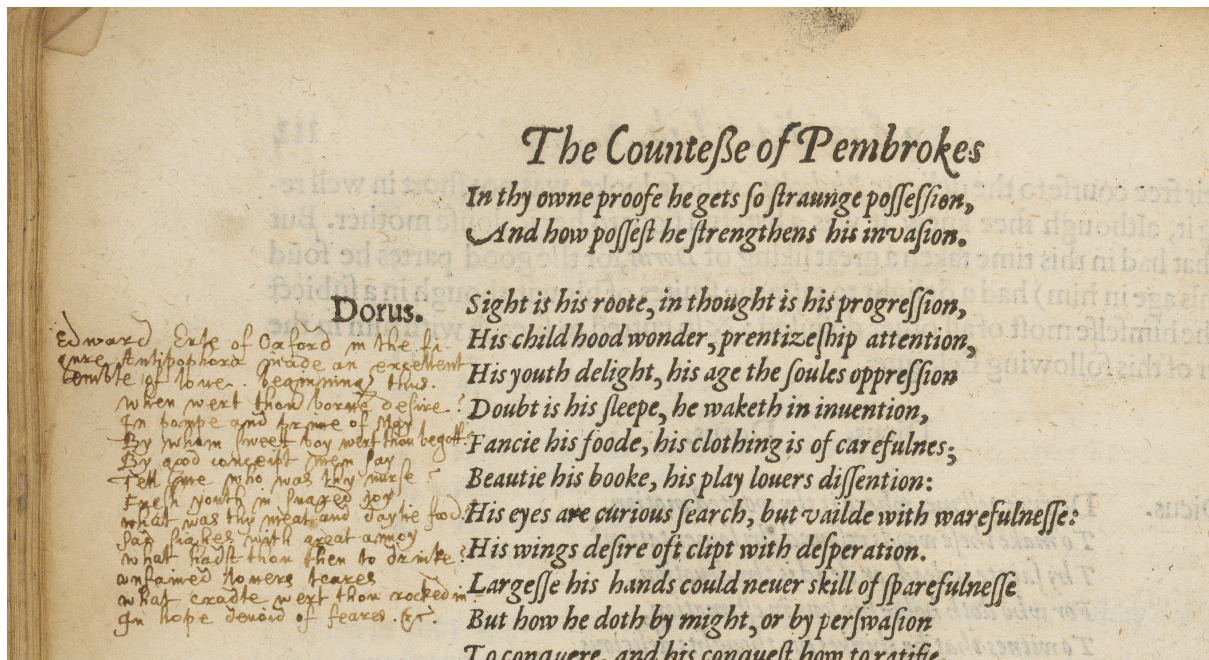 The Counteſſe of Pembrokes
In thy owne proofe he gets ſo ſtraunge poſſeſſion,
And how poſſeſt he ſtrengthens his invaſion.
Dorus.
Sight is his roote, in thought is his progreſſion,
His childhood wonder, prentizeſhip attention,
His youth delight, his age the ſoules oppreſſion
Doubt is his ſleepe, he waketh in inuention,
Fancie his foode, his clothing is of carefulnes;
Beautie his booke, his play louers diſſention:
His eyes are curious ſearch, but vailde with warefulneſſe:
His wings deſire oft clipt with deſperation.
Largeſſe his hands could neuer skill of ſparefulneſſe
But how he doth by might, or by perſwaſion
To conquere, and his conqueſt how to ratifie
Edward Erle of Oxford in the fi
gure Antipophora made an excellent
of loue. beginning thus.
when wert thou borne desire?
In pompe and prime of May
By whom sweet boy wert thou begott
By good conceipt men say
Tell me who was thy nurse?
Fresh youth in sugred joy
what was thy meat and daylie food.
Sad sighes with great annoy
what hadst thou then to drinke?
unfained lovers teares
what cradle wert thou rocked in
In hope devoid of feares. &c.